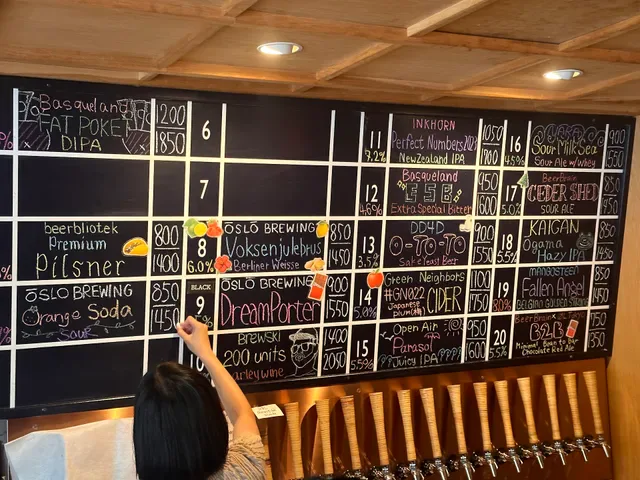 %
Basqueland
FAT POKET
DIPA
1200
1850
6
7
%
beerbliotek
Premium
Pilsner
800
1400
8
6.0%
ŌSLŌ BREWING
Voksenjulebrus
Berliner Weisse
850
1450
ŌSLŌ BREWING
Orange Soda
SOUR
850
1450
BLACK
9
ŌSLŌ BREWING
DreamPorter
900
1550
10
BREWSKI
200 units
Barleywine
1400
2050
11
7.2%
INKHORN
Perfect Numbers
NewZealand IPA
1050
1700
12
4.6%
Basqueland
ESB
Extra Special Bitter
950
1600
13
3.5%
DD4D
O-TO-TO
Sake Yeast Beer
900
1550
14
5.0%
Green Neighbors
#GN022 CIDER
Japanese
Plum
1100
1750
15
5.5%
Open Air
Parasol
Juicy IPA
950
1600
16
4.5%
SourMilkSea
Sour Ale w/ whey
900
1550
17
5.0%
BeerBrain
CEDER SHED
SOUR ALE
850
18
5.5%
KAIGAN
Ogama
Hazy IPA
850
1450
19
8.0%
MANGOSTEEN
Fallen Angel
BELGIAN GOLDEN STRONG
850
1450
20
5.5%
B2B
Minimal Bean to Bar
Chocolate Red Ale
750
1350